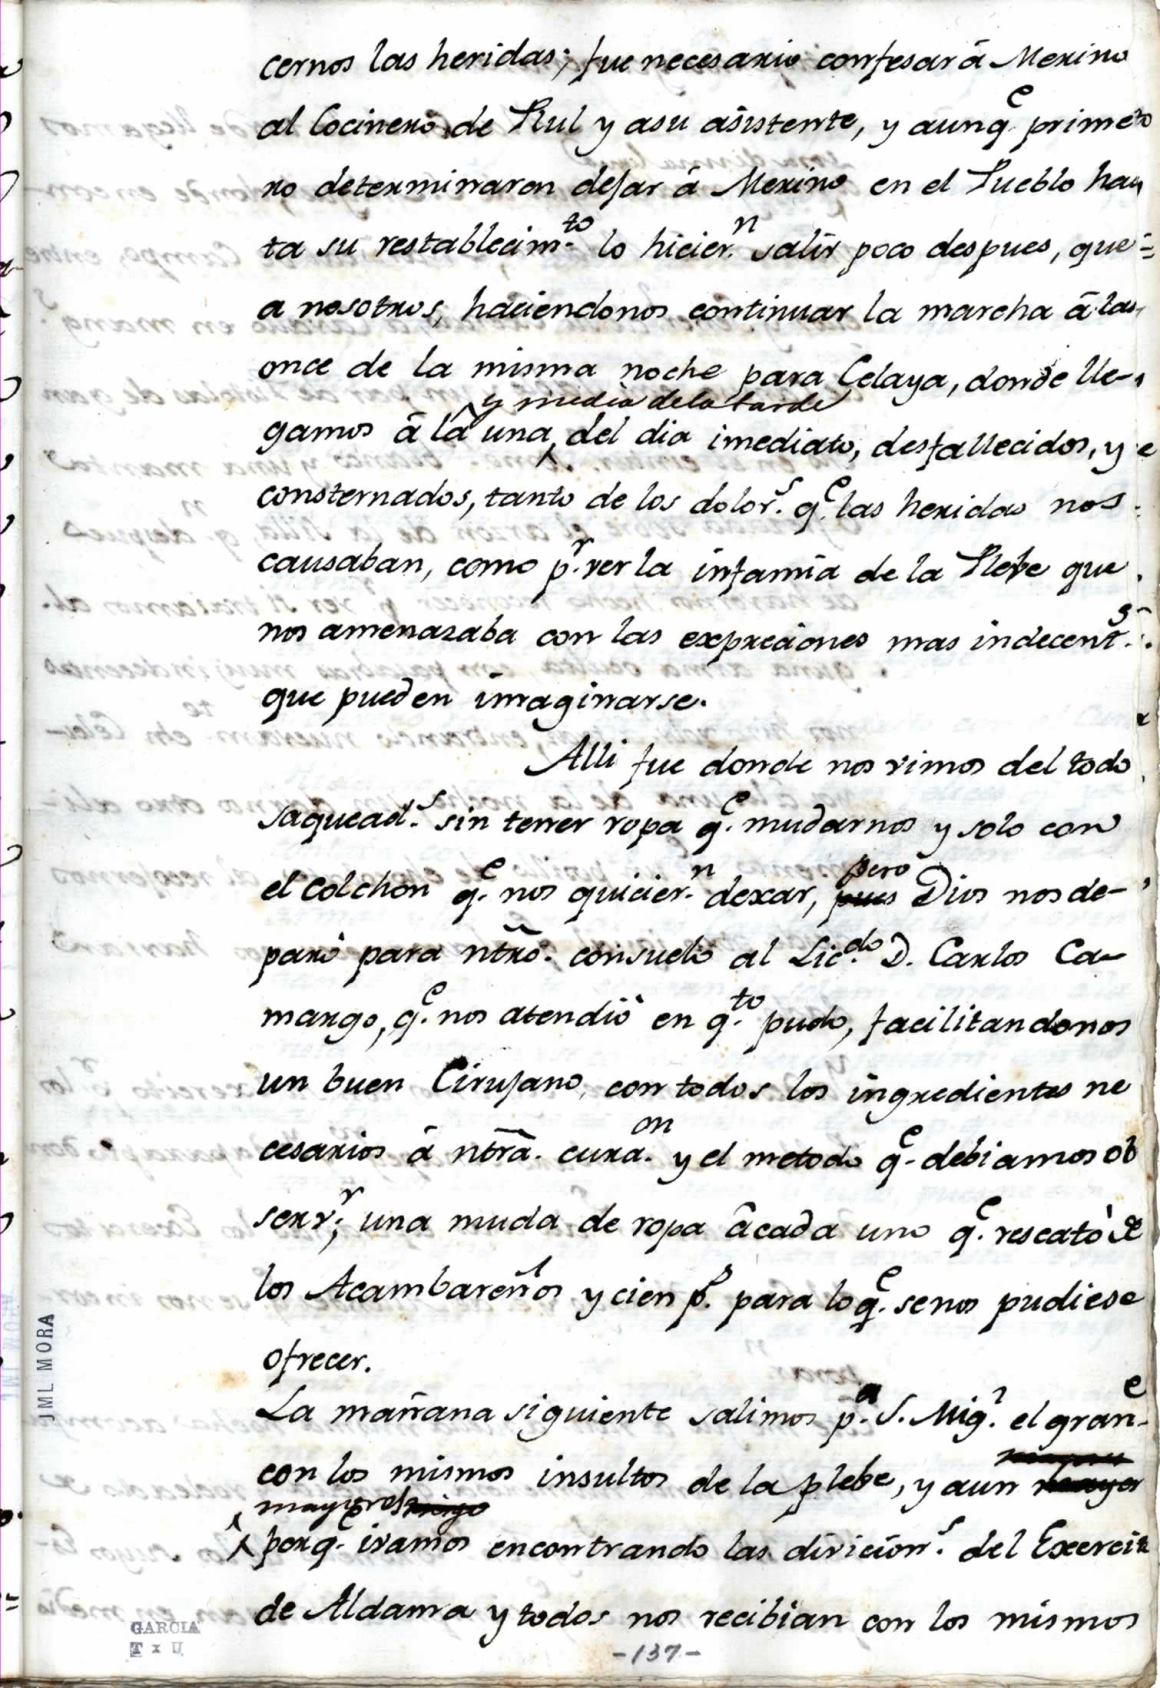 cernos las heridas; fue necesario confesar á Merino
al Cocinero de Rul y asu asistente, y aunq.e primero
ro determinaron dejar á Merino en el Pueblo has
ta su restablecim.to lo hicier.n salir poco despues, que
a nosotros, haciendonos continuar la marcha á las
once de la misma noche para Celaya, donde lle-
y media dela tarde
gamos á la una, del dia imediato, desfallecidos, y
consternados, tanto de los dolor.s q.e las heridas nos
causaban, como p.r ver la infamia de la Plebe que
nos amenazaba con las expreciones mas indecent.s
que pueden imaginarse.
Alli fue donde nos vimos del todo
saquead.s sin tener ropa q.e mudarnos y solo con
pero
el colchon q.e nos quicier.n dexar, pues Dios nos de-
paró para ntrõ. consuelo al Lic.do D. Carlos Ca-
margo, q.e nos atendió en q.to pudo, facilitandonos
un buen Cirujano, con todos los ingredientes ne
cesarios á ntrã. cura.on y el metodo q.e debiamos ob
serv.r; una muda de ropa ácada uno q.e rescató de
los Acambareños y cien p.s para lo q.e senos pudiese
ofrecer.
La mañana siguiente salimos p.a S. Mig.l el gran.e
con los mismos insultos de la plebe, y aun mayor
mayores
porq.e ivamos encontrando las divicion.s del Exercito
de Aldama y todos nos recibian con los mismos
-137-
JML MORA
GARCIA